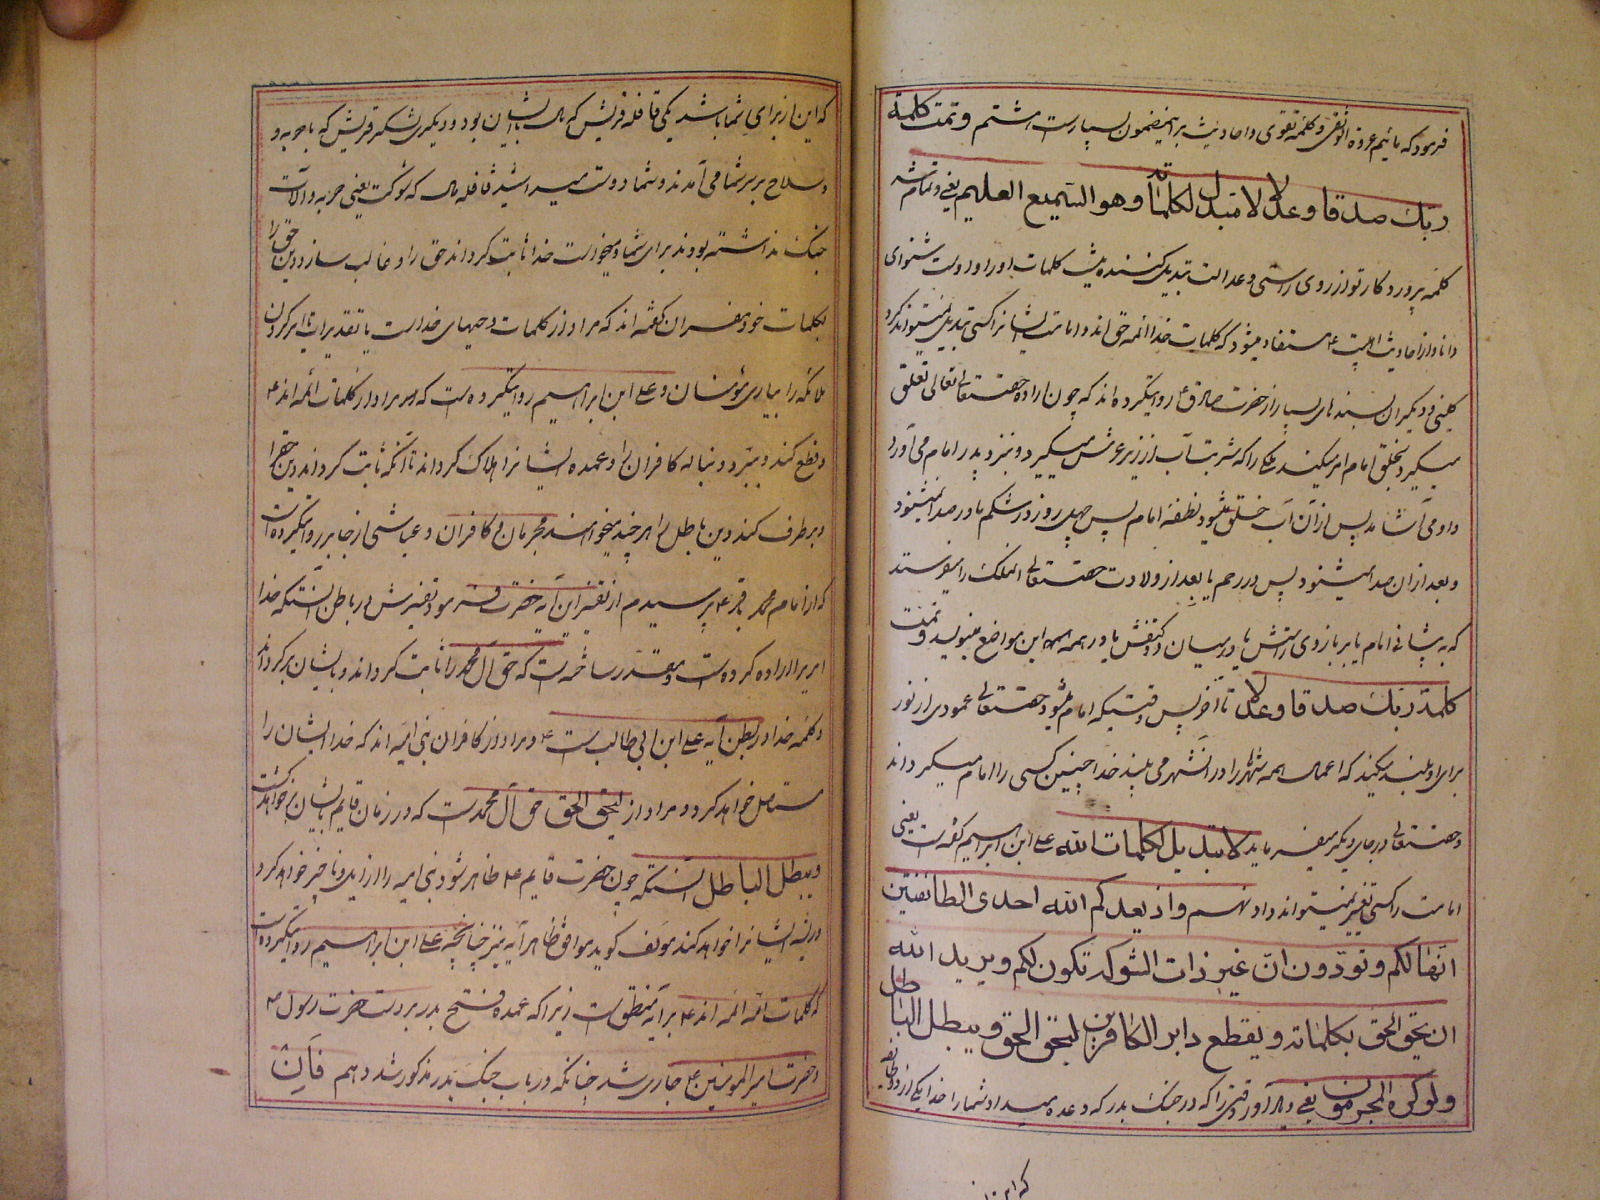 فرمود که مائیم عروة الوثقی و کلمه تقوی و احادیث بر اینمضمون بسیارست هشتم و تمت کلمة
ربك صدقا وعدلا لا مبدل لکلماته وهو السمیع العلیم یعنی و تمام شد
کلمه پروردکار تو از روی راستی و عدالت تبدیل کننده نیست کلمات او را و اوست شنوای
دانا و از احادیث اهلبیت ع مستفاد میشود که کلمات خدا ائمه حق اند و امامت ایشانرا کسی تبدیل نمیتواند کرد
کلینی و دیکران بسندهای بسیار از حضرت صادق ع روایتکرده اند که چون اراده حقتعالی تعلق
میکیرد بخلق امام امر میکند ملکی را که شربت آب از زیر عرش میکیرد و بنزد پدر امام می آورد
و او می آشامد پس از آن آب خلق میشود نطفه امام پس چهل روز در شکم مادر صدا نمیشنود
و بعد از ان صدا میشنود پس در رحم یا بعد از ولادت حقتعالی آنملک را میفرستد
که به پیشانی امام یا بر بازوی راستش یا در میان دو کتفش یا در همه این مواضع مینویسد و تمت
کلمة ربك صدقا وعدلا تا آخر پس وقتیکه امام میشود حقتعالی عمودی از نور
برای او بلند میکند که اعمال همه شهرها را در آنشهر می بیند خدا چنین کسی را امام میکرداند
و حقتعالی در جای دیکر میفرماید لا تبدیل لکلمات الله علی ابن ابراهیم کفته است یعنی
امامت را کسی تغییر نمیتواند داد نهم واذ یعدکم الله احدی الطائفتین
انها لکم وتودون ان غیر ذات الشوکة تکون لکم ویرید الله
ان یحق الحق بکلماته ویقطع دابر الکافرین لیحق الحق ویبطل الباطل
ولو کره المجرمون یعنی و یاد آور وقتی را که در جنك بدر که وعده میداد شما را خدا یکی از دو طایفه
که این
که این از برای شما باشد یکی قافله قریش که مال ایشان بود و دیکری لشکر قریش که با حربه و
سلاح بر سر شما می آمدند و شما دوست میداشتید قافله مال که شوکت یعنی حربه و آلات
جنك نداشته بودند برای شما و میخواست خدا ثابت کرداند حق را و غالب سازد دین حق را
بکلمات خود مفسران کفته اند که مراد از کلمات وحیهای خداست یا تقدیرات یا امر کردن
ملائکه را بیاری مؤمنان و علی ابن ابراهیم روایتکرده است که مراد از کلمات ائمه اند ع
و قطع کند و ببرد دنباله کافران را و عمده ایشانرا هلاك کرداند تا آنکه ثابت کرداند دین حق را
و برطرف کند دین باطل را هر چند نخواهند مجرمان و کافران و عیاشی از جابر روایتکرده است
که از امام محمد باقر ع پرسیدم از تفسیر این آیه حضرت فرمود تفسیرش در باطن آنستکه خدا
امریرا اراده کرده است و مقدر ساخته است که حق آل محمد را ثابت کرداند و بایشان برکرداند
و کلمه خدا در بطن آیه علی ابن ابی طالب است ع و مراد از کافران بنی امیه اند که خدا ایشان را
مستاصل خواهد کرد و مراد از لیحق الحق حق آل محمد ست که در زمان قایم بایشان برخواهد کشت
ویبطل الباطل آنستکه چون حضرت قایم ع ظاهر شود بنی امیه را از ایل و ناچیز خواهد کرد
و ریشه ایشانرا خواهد کند مؤلف کوید موافق ظاهر آیه نیز چنانچه علی ابن ابراهیم روایتکرده است
که کلمات الله ائمه اند ع بر آیه منطبق ست زیرا که عمده فتح بدر بر دست حضرت رسول ص
و حضرت امیر المومنین ع جاری شد چنانکه در باب جنك بدر مذکور شد دهم فان